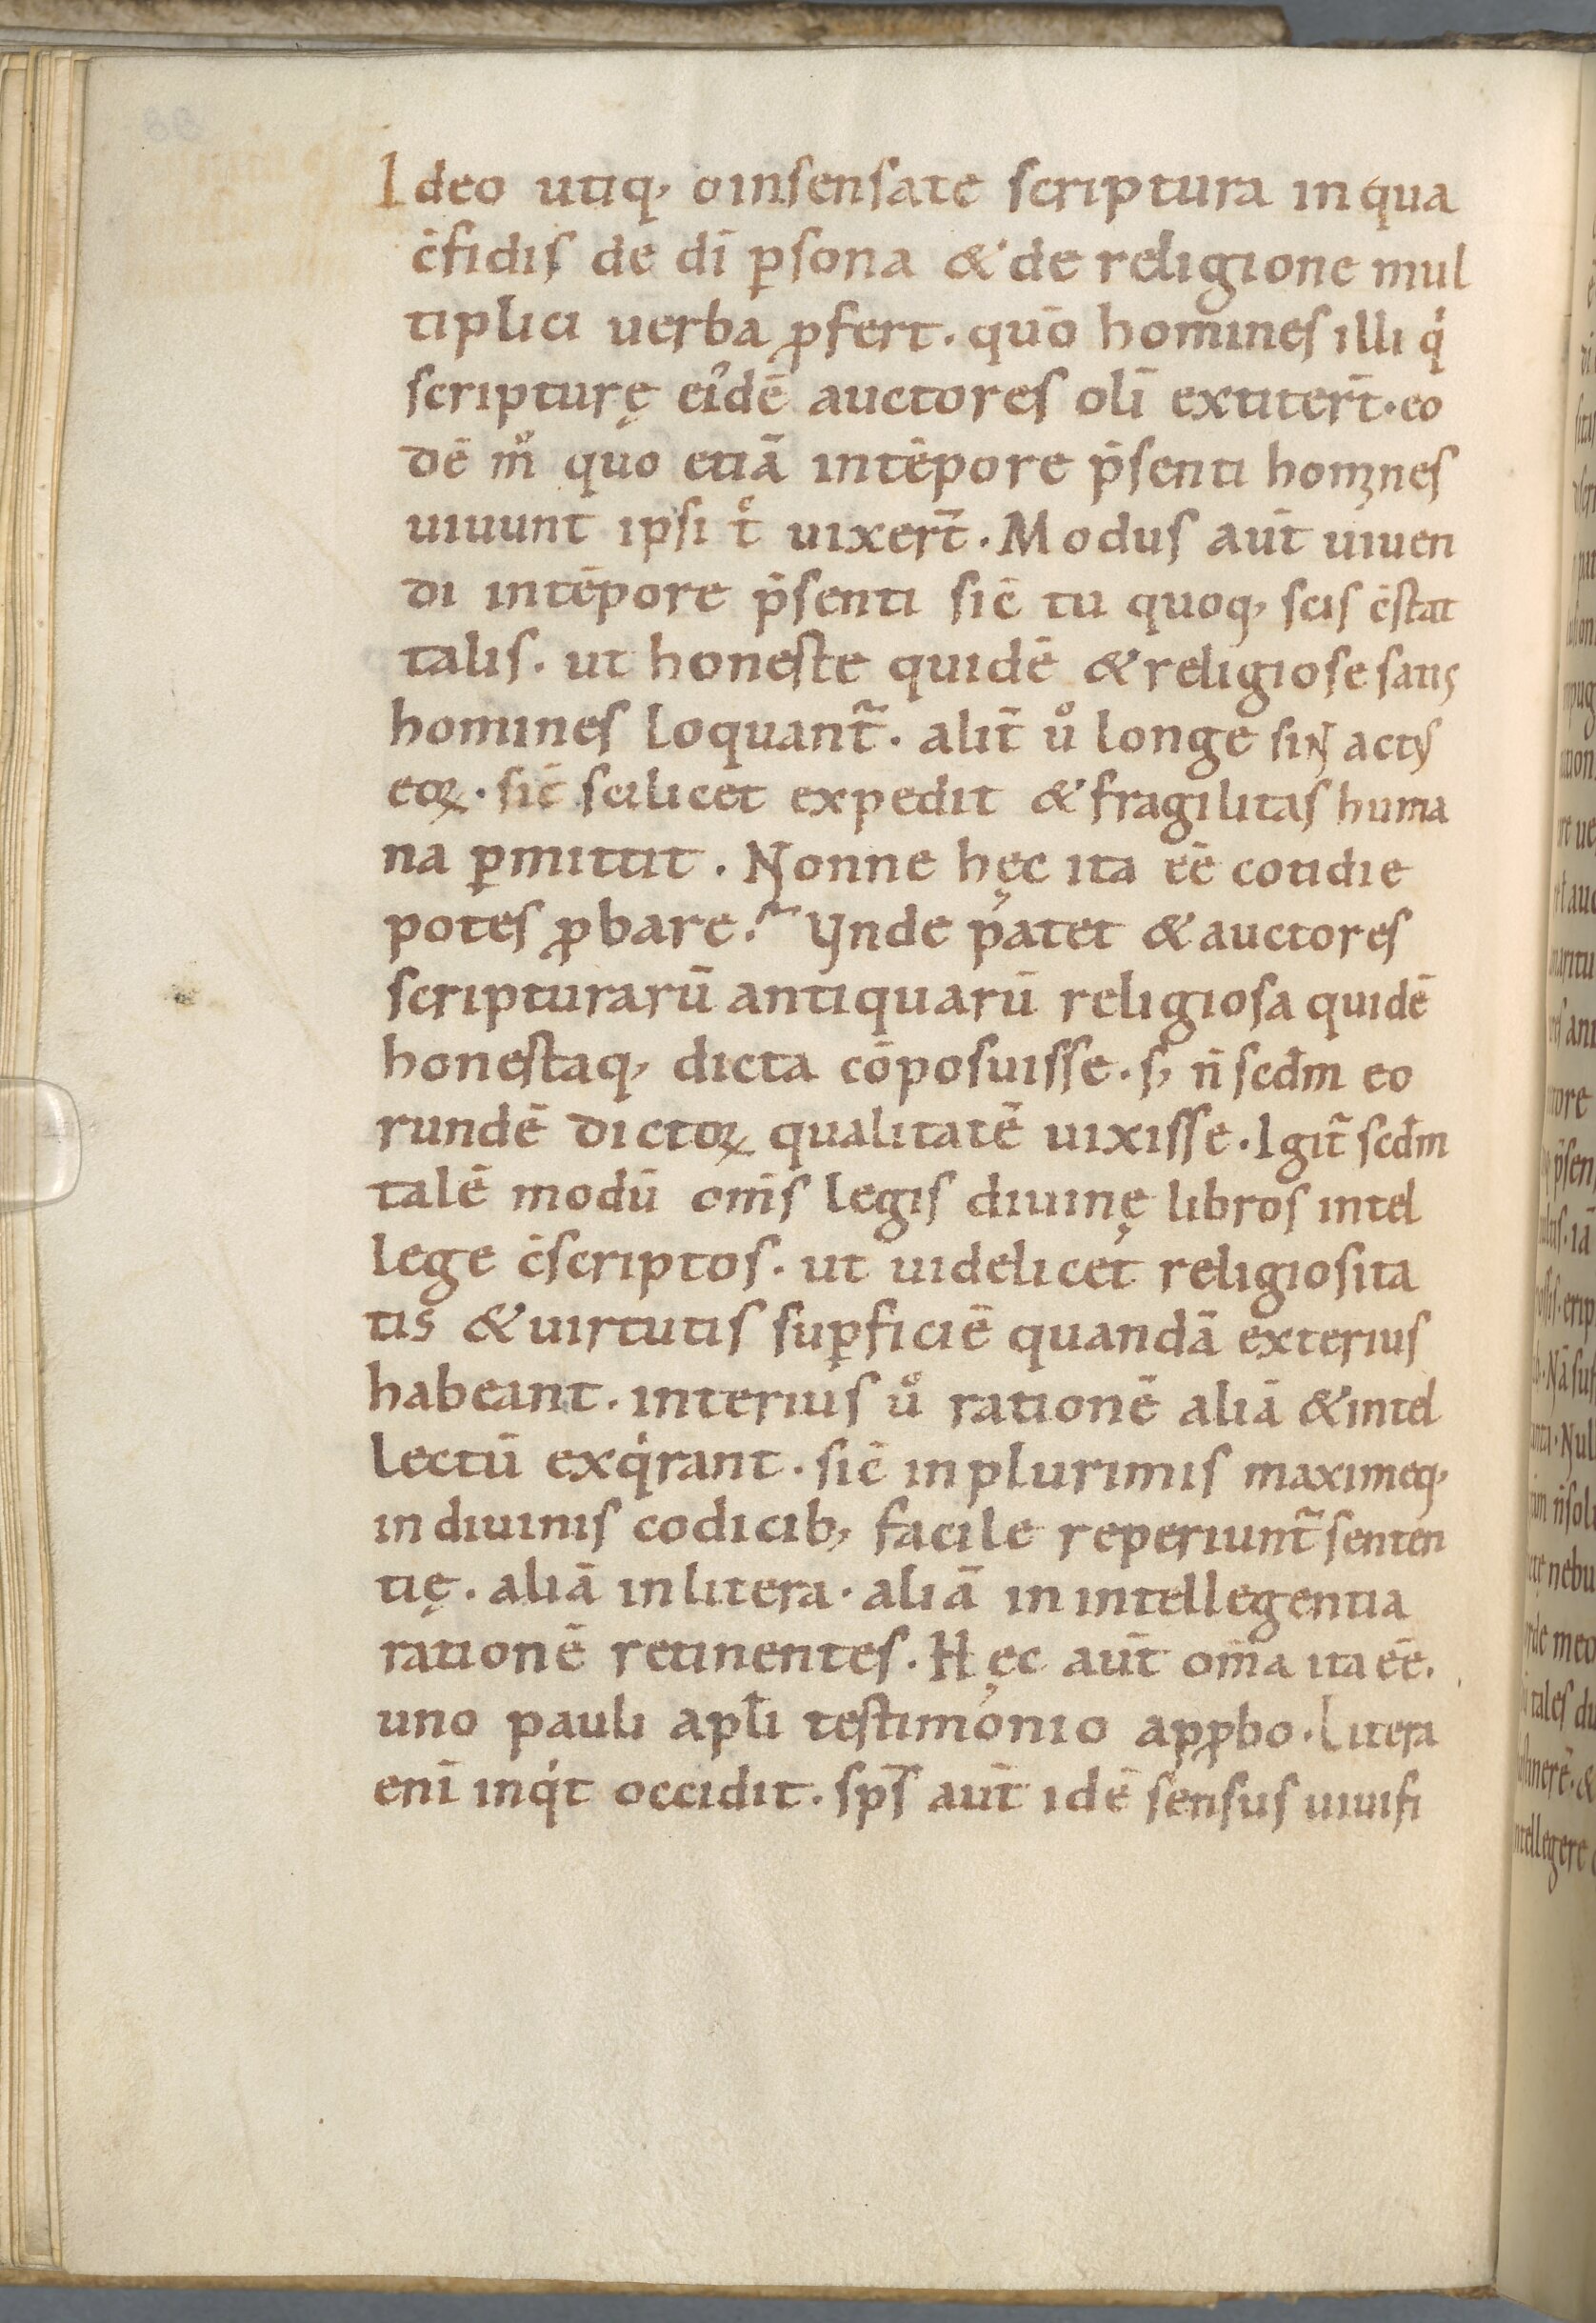 Ideo utiq, oinsensate scriptura inqua
c̄fidis de dī p̱sona &de religione mul
tiplici uerba ꝓfert. quō homines illi q'
scripturę ei᷒dē auctores olī extitert̄. eo
dē m̊ quo etiā intēpore p̄senti homines
uiuunt ipsi t̊ uixert̄. Modus aut̄ uiuen
di intēpore p̄senti sic̄ tu quoq, scis c̄stat
talis. ut honeste quidē &religiose satis
homines loquant᷑. alit̄ ů longe sin̄t actus
eoꝝ. sic̄ scilicet expedit &fragilitas huma
na ꝑmittit. Nonne hęc ita eē cotidie
potes ꝓbare? Vnde patet &auctores
scripturarū antiquarū religiosa quidē
honestaq, dicta cōposuisse. s, n̄ scdm̄ eo
rundē dictoꝝ qualitatē uixisse. Igit᷑ scdm̄
talē modū om̄s legis diuinę libros intel
lege c̄scriptos. ut uidelicet religiosita
tis &uirtutis suꝑficiē quandā exterius
habeant. interius ů rationē aliā &intel
lectū exq'rant. sic̄ inplurimis maximeq,
indiuinis codicib, facile reperiunt᷑ senten
tię. aliā inlitera. aliā in intellegentia
rationē retinentes. Hęc aut̄ om̄a ita eē.
uno pauli apl̄i testimonio apꝓbo. Litera
enī inq't occidit. sps̄ aut̄ idē sensus uiuifi